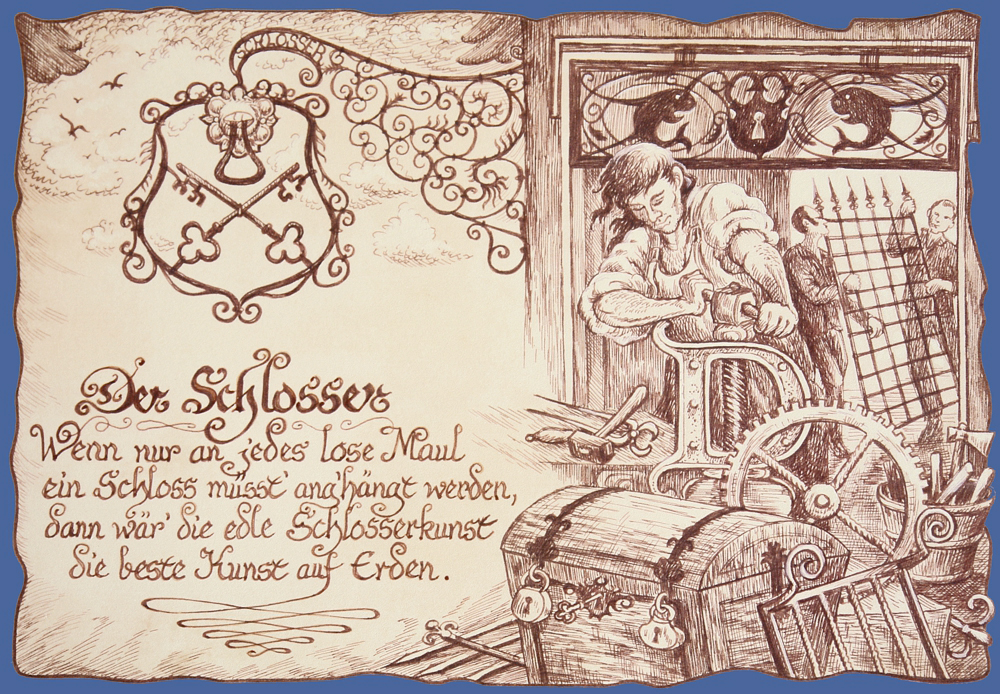 SCHLOSSER
Der Schlosser
Wenn nur an jedes lose Maul
ein Schloss müsst' ang'hängt werden,
dann wär' die edle Schlosserkunst
die beste Kunst auf Erden.